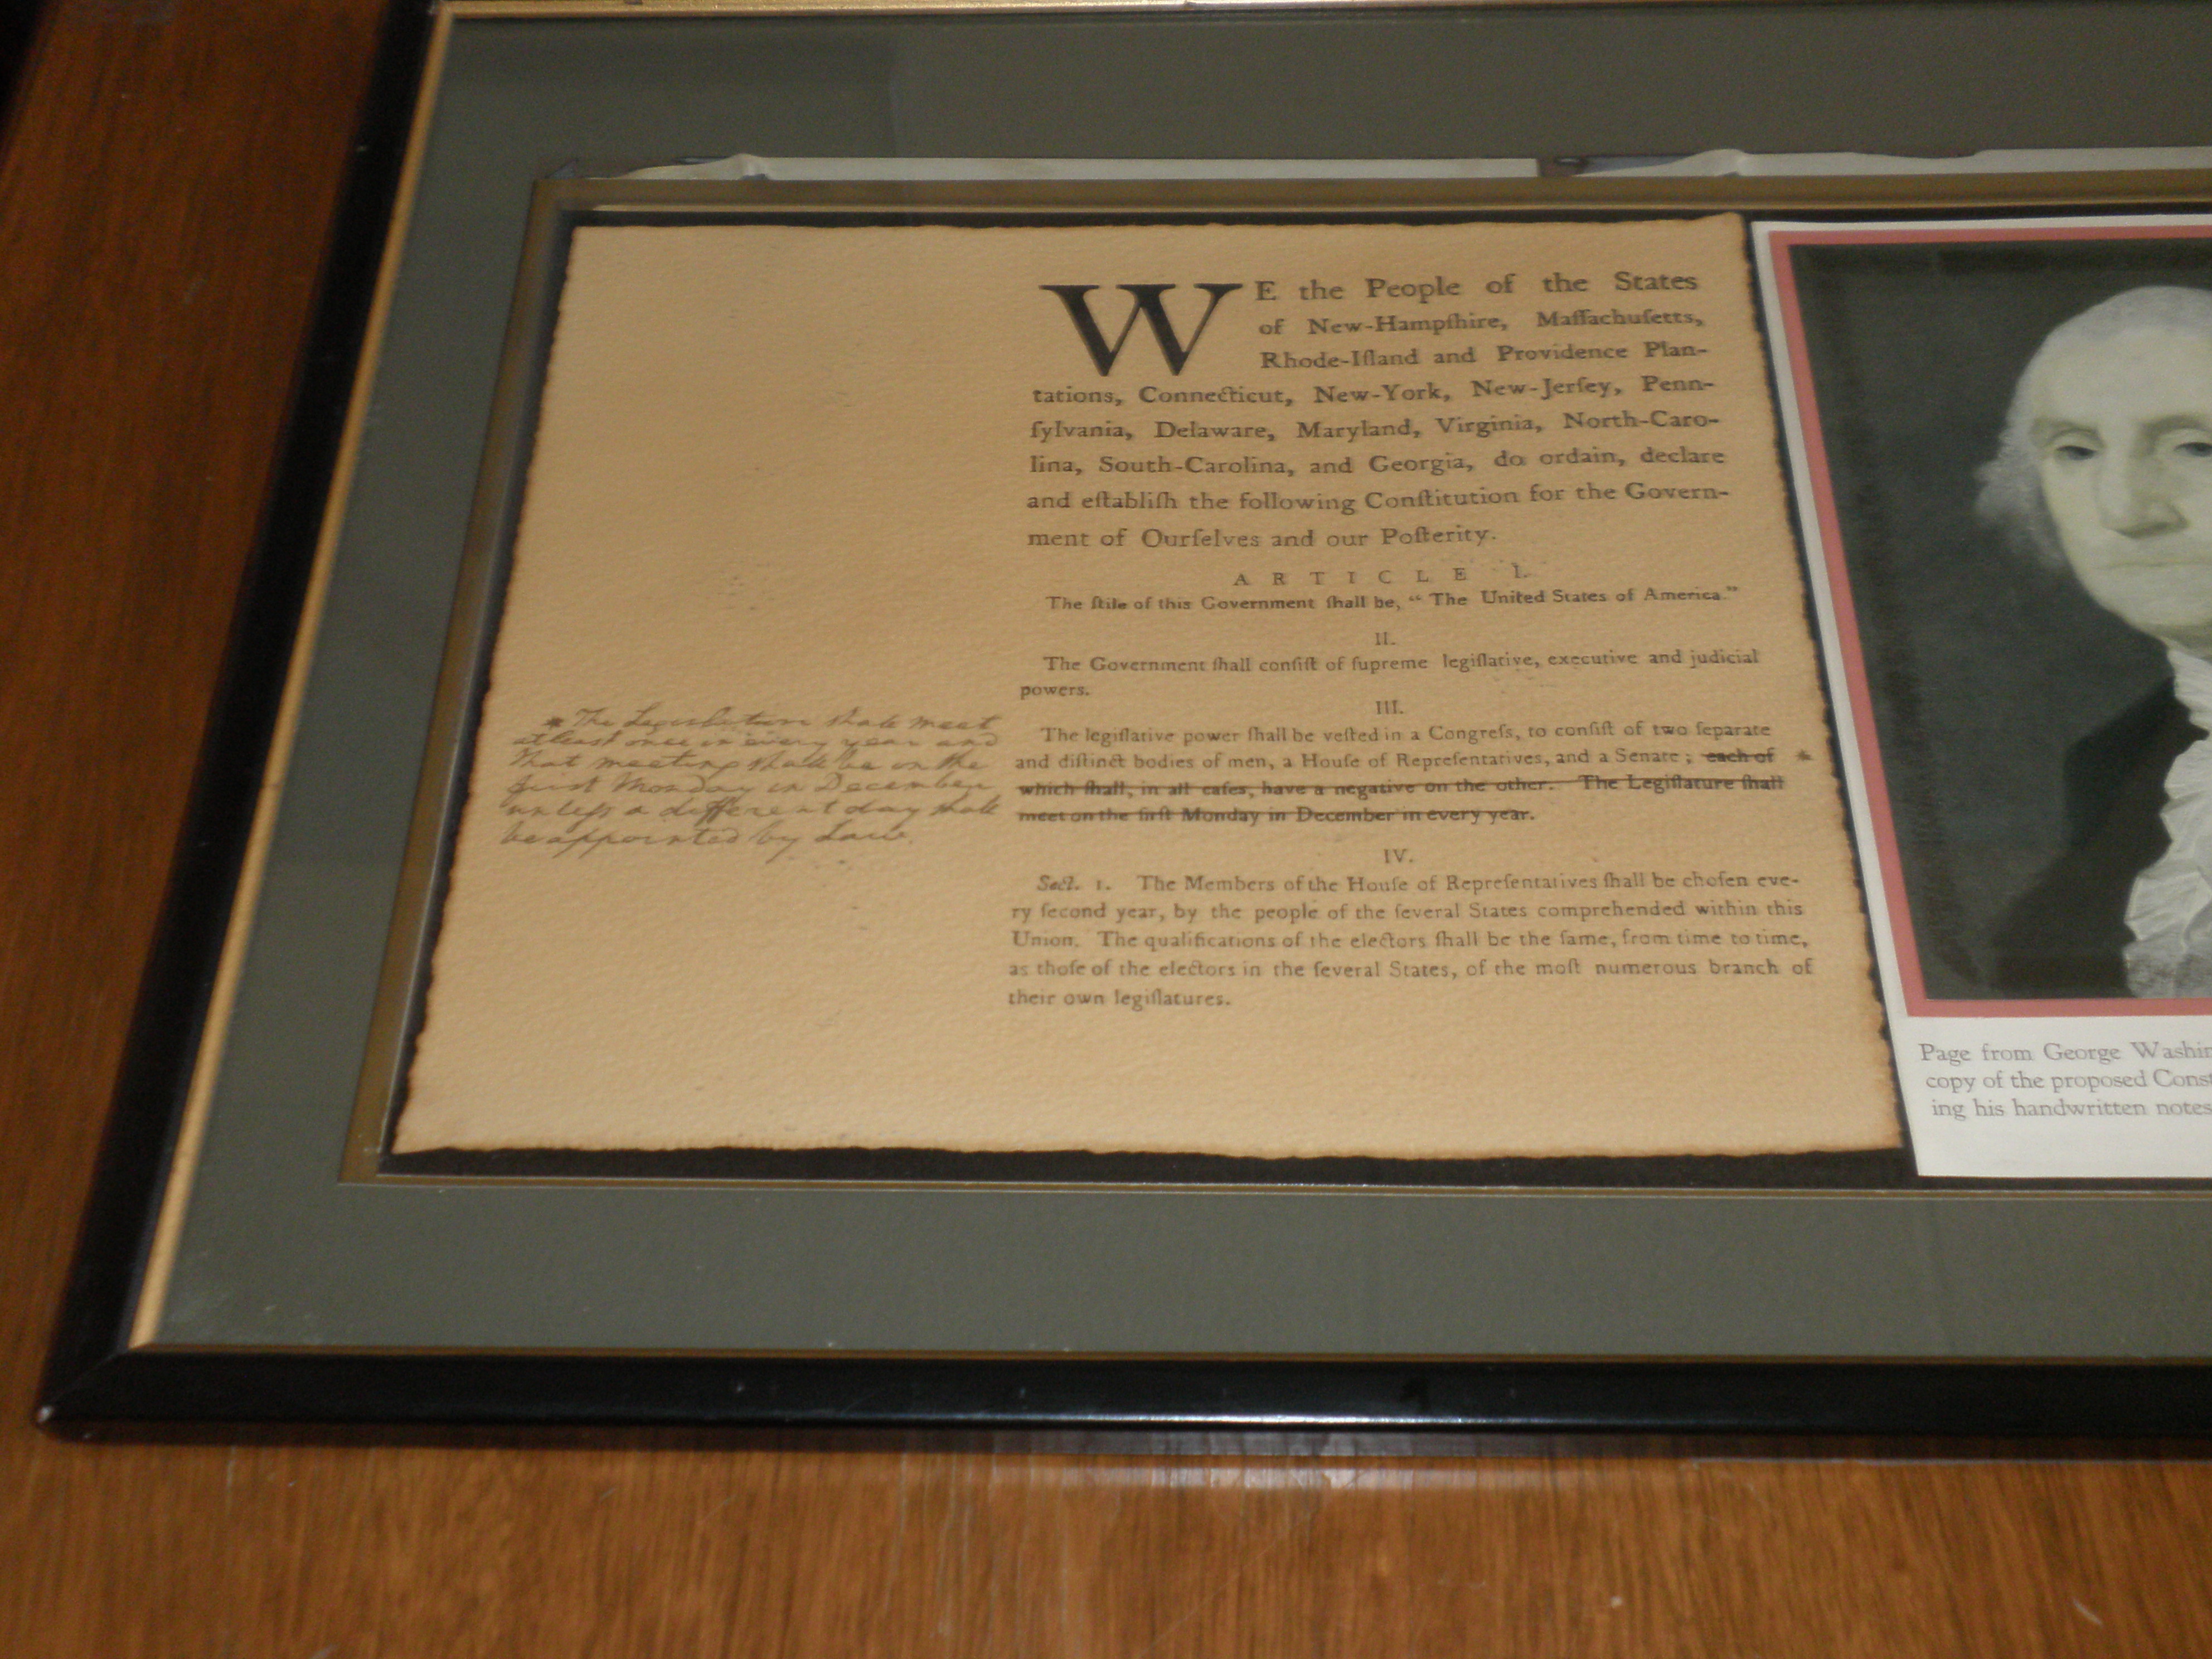 WE the People of the States
of New-Hampſhire, Maſſachuſetts,
Rhode-Iſland and Providence Plan-
tations, Connecticut, New-York, New-Jerſey, Penn-
ſylvania, Delaware, Maryland, Virginia, North-Caro-
lina, South-Carolina, and Georgia, do ordain, declare
and eſtabliſh the following Conſtitution for the Govern-
ment of Ourſelves and our Poſterity.
ARTICLE I.
The ſtile of this Government ſhall be, “ The United States of America.”
II.
The Government ſhall conſiſt of ſupreme legiſlative, executive and judicial
powers.
III.
The legiſlative power ſhall be veſted in a Congreſs, to conſiſt of two ſeparate
and diſtinct bodies of men, a Houſe of Repreſentatives, and a Senate ; each of *
which ſhall, in all caſes, have a negative on the other. The Legiſlature ſhall
meet on the firſt Monday in December in every year.
* The Legislature shall meet
at least once in every year and
that meeting shall be on the
first Monday in December
unleſs a different day shall
be appointed by Law.
IV.
Sect. 1. The Members of the Houſe of Repreſentatives ſhall be choſen eve-
ry ſecond year, by the people of the ſeveral States comprehended within this
Union. The qualifications of the electors ſhall be the ſame, from time to time,
as thoſe of the electors in the ſeveral States, of the moſt numerous branch of
their own legiſlatures.
Page from George Washin
copy of the proposed Const
ing his handwritten notes